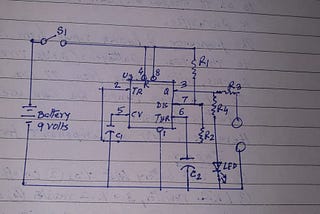 S1
4 8
R1
U1
R
2 TR Q 3 R3
DIS 7 R4
5 CV THR 6 R2
Battery
9 volts
C1
1
C2
LED